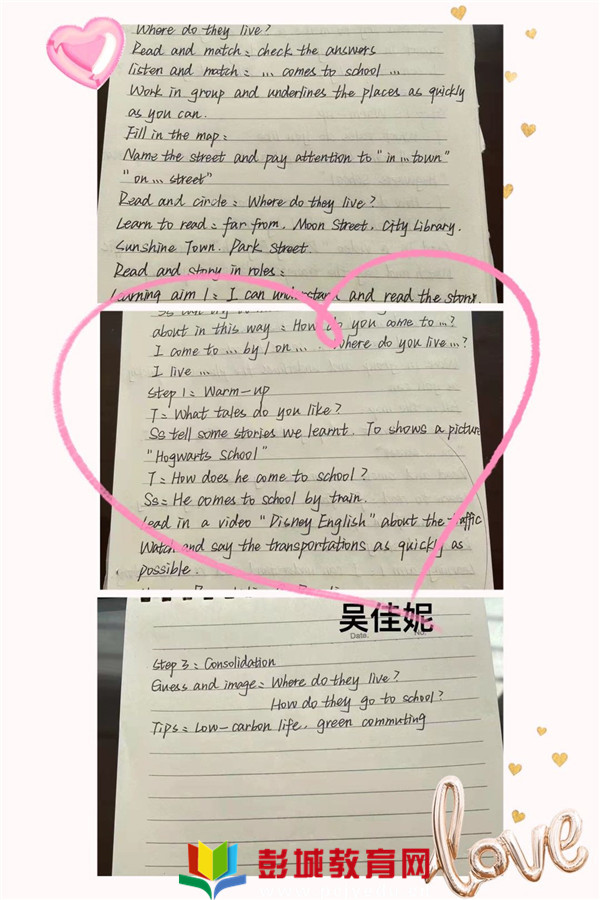 Where do they live?
Read and match: check the answers
listen and match: ... comes to school ...
Work in group and underlines the places as quickly
as you can.
Fill in the map:
Name the street and pay attention to "in ... town"
"on ... street"
Read and circle: Where do they live?
Learn to read: far from, Moon Street, City Library.
Sunshine Town. Park Street.
Read and story in roles:
Learning aim 1: I can understand and read the story.
about in this way: How do you come to ...?
I come to ... by / on ... . Where do you live ...?
I live ...
Step 1: Warm-up
T: What tales do you like?
Ss tell some stories we learnt. To shows a picture
"Hogwarts School"
T: How does he come to school?
Ss: He comes to school by train.
Lead in a video "Disney English" about the traffic
Watch and say the transportations as quickly as
possible.
吴佳妮
Date. No.
Step 3: Consolidation
Guess and image: Where do they live?
How do they go to school?
Tips: Low-carbon life, green commuting
love
彭城教育网